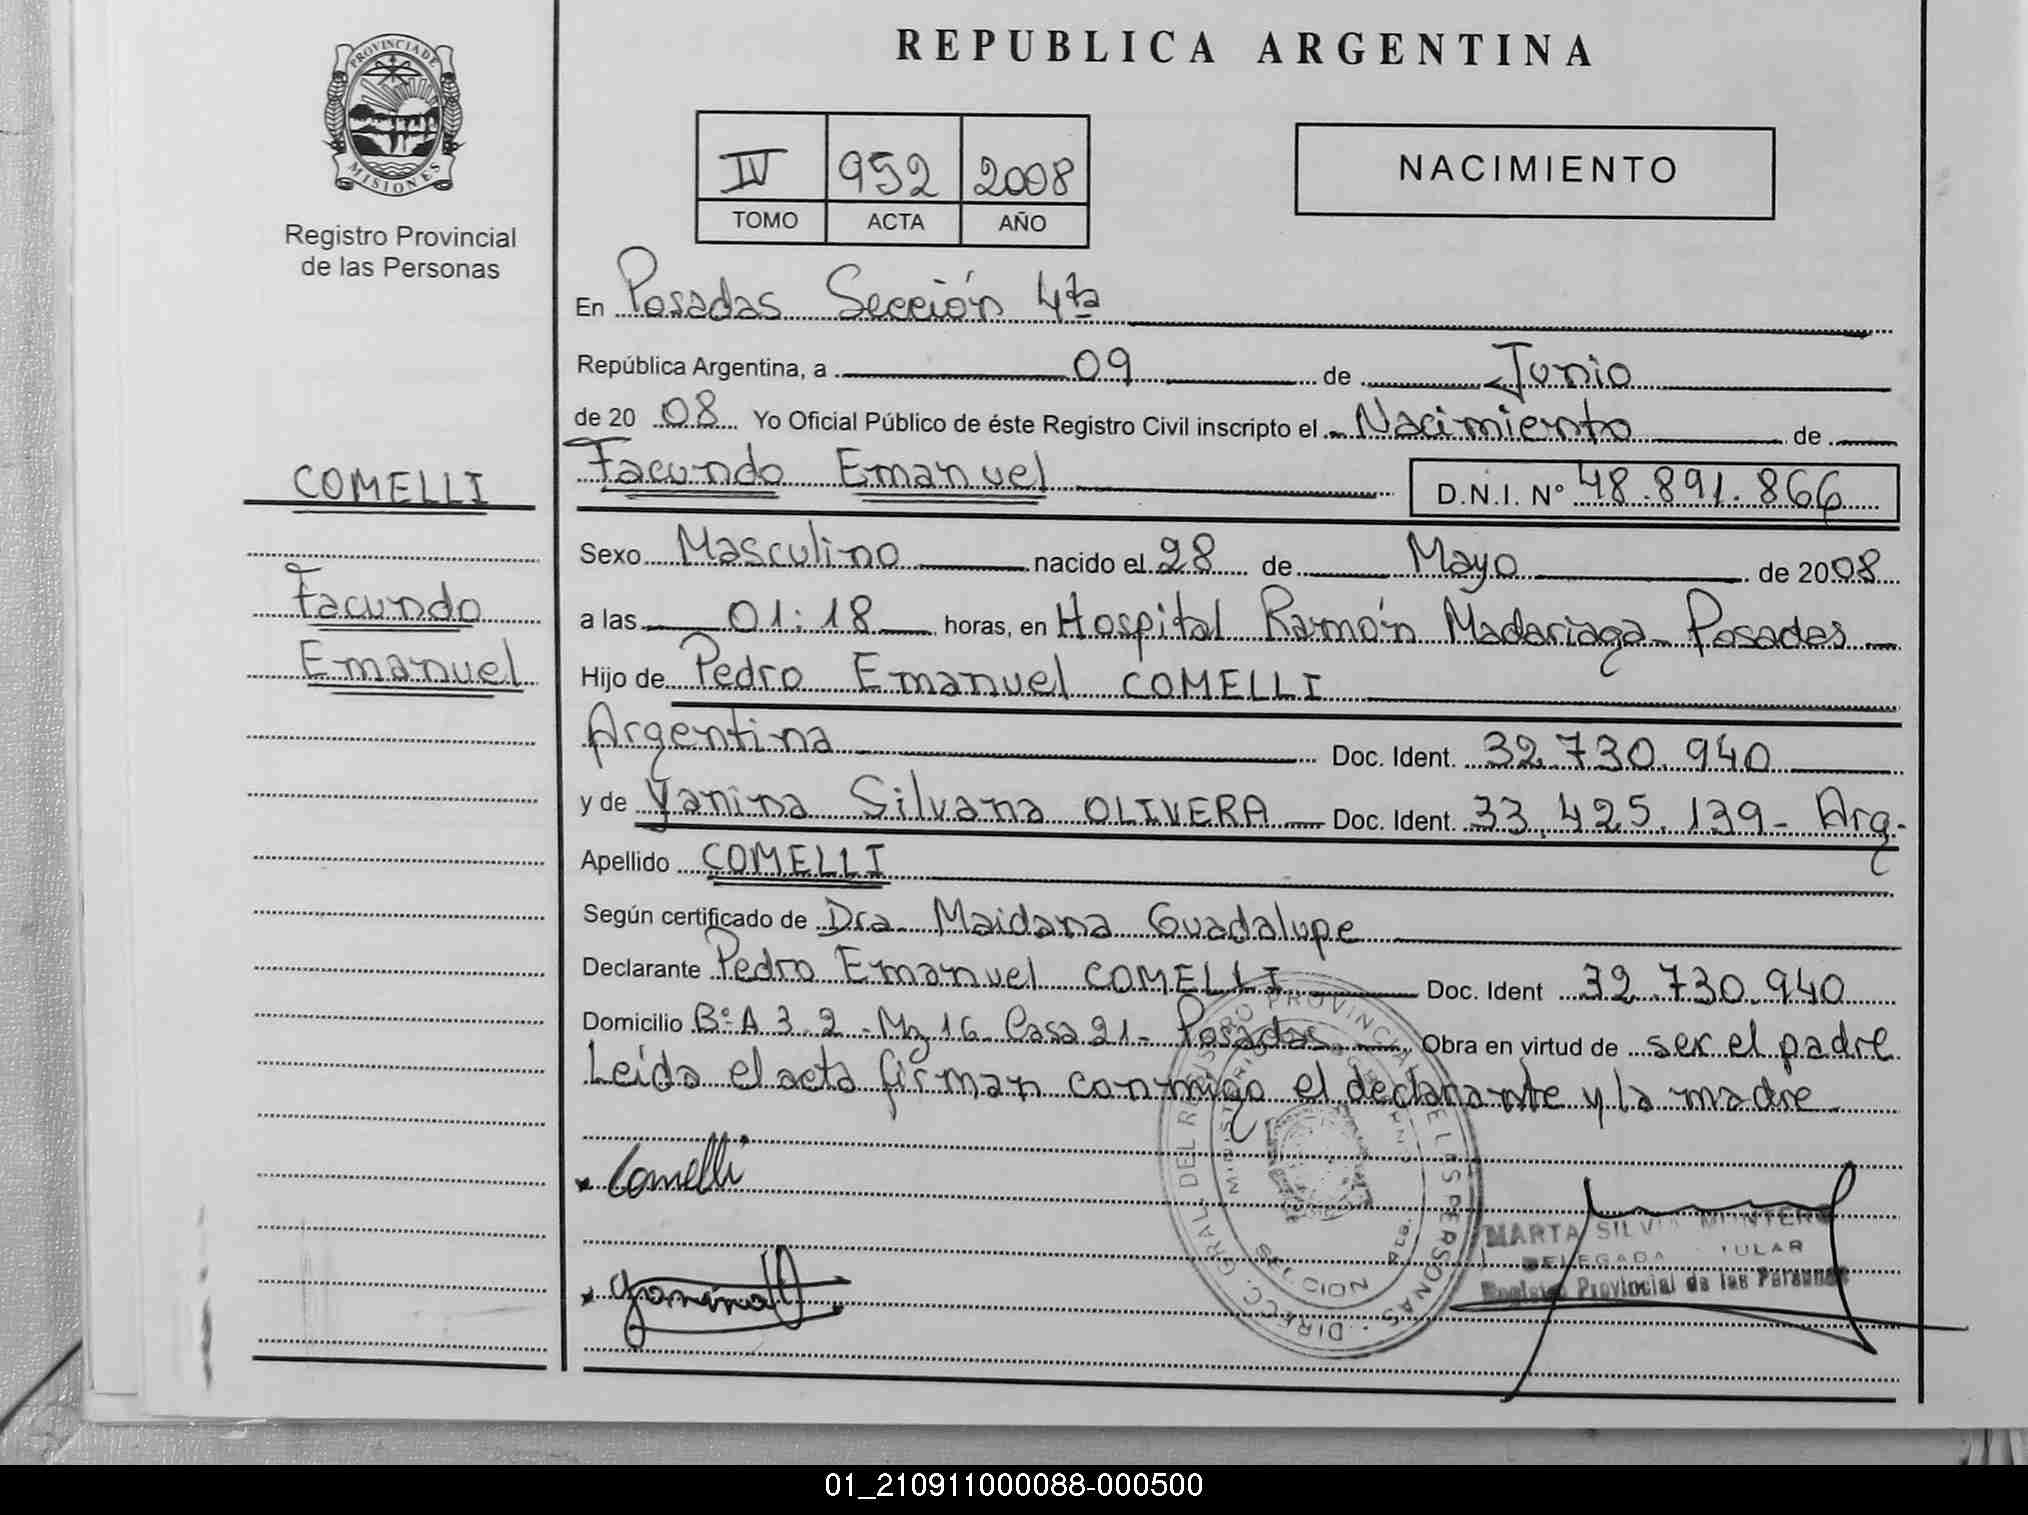 REPUBLICA ARGENTINA
PROVINCIA DE
MISIONES
Registro Provincial
de las Personas
IV 952 2008
TOMO ACTA AÑO
NACIMIENTO
En Posadas Sección 4ta
República Argentina, a 09 de Junio
de 2008 Yo Oficial Público de éste Registro Civil inscripto el Nacimiento de
Facundo Emanuel D.N.I. Nº 48.891.866
COMELLI
Facundo
Emanuel
Sexo Masculino nacido el 28 de Mayo de 2008
a las 01:18 horas, en Hospital Ramón Madariaga Posadas
Hijo de Pedro Emanuel COMELLI
Argentina Doc. Ident. 32.730.940
y de Yanina Silvana OLIVERA Doc. Ident. 33.425.139- Arg.
Apellido COMELLI
Según certificado de Dra. Maidana Guadalupe
Declarante Pedro Emanuel COMELLI Doc. Ident 32.730.940
Domicilio Bº A 3.2 - Mz 16 Casa 21- Posadas Obra en virtud de ser el padre
Leída el acta firman conmigo el declarante y la madre
Comelli
Yanina
DIRECC. GRAL. DEL REGISTRO PROVINCIAL DE LAS PERSONAS
SECCION
MARTA SILVIA MONTERO
DELEGADA TITULAR
Registro Provincial de las Personas
01_210911000088-000500